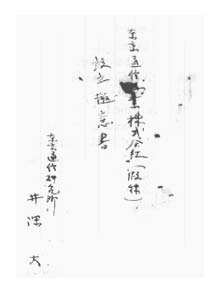 東京通信工業株式会社（仮称）
設立趣意書
東京通信研究所
井深 大